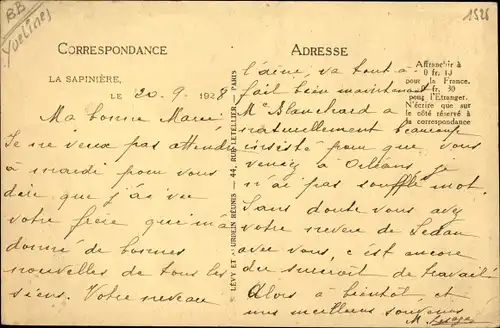 BB
Yvelines
1528
CORRESPONDANCE
ADRESSE
Affranchir à
0 fr. 10
pour la France.
0 fr. 30
pour l'Étranger.
N'écrire que sur
le côté réservé à
la correspondance
LA SAPINIÈRE,
LE 20. 9. 1928
Ma bonne Marie
Je ne veux pas attendre
à mardi pour vous
dire que j'ai vu
votre frère qui m'a
donné de bonnes
nouvelles de tous les
siens. Votre neveu
LÉVY ET NEURDEIN RÉUNIS — 44, RUE LETELLIER — PARIS
l'aîné, va tout à
fait bien maintenant
Me Blanchard a
naturellement beaucoup
insisté pour que vous
veniez à Orléans je
n'ai pas soufflé mot.
Sans doute vous avez
votre neveu de Sedan
avec vous, c'est encore
du surcroit de travail
Alors à bientôt, et
mes meilleurs souvenirs
M.